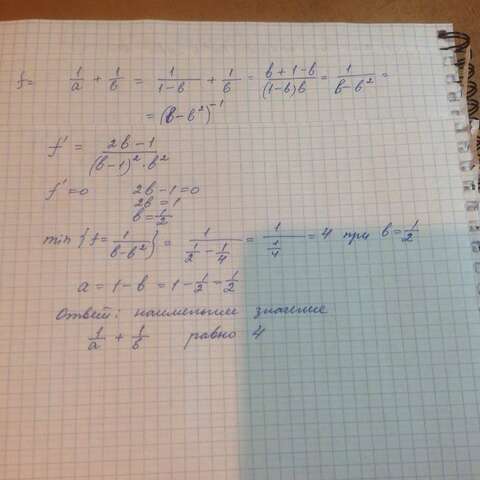 f = 1/a + 1/b = 1/(1-b) + 1/b = (b+1-b)/((1-b)b) = 1/(b-b²) =
= (b-b²)⁻¹
f' = (2b-1)/((b-1)²·b²)
f'=0 2b-1=0
2b=1
b=1/2
min {f=1/(b-b²)} = 1/(1/2-1/4) = 1/(1/4) = 4 при b=1/2
a = 1-b = 1-1/2 = 1/2
Ответ: наименьшее значение
1/a + 1/b равно 4